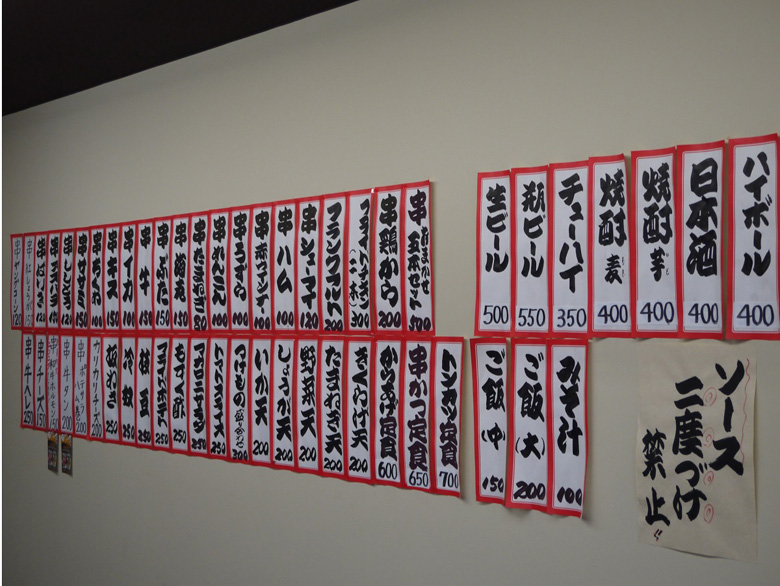 ハイボール 400
日本酒 400
焼酎 芋 いも 400
焼酎 麦 むぎ 400
チューハイ 350
瓶ビール 550
生ビール 500
串 おまかせ 五本セット 500
串 鶏から 200
フライドチキン (一本) 300
フランクフルト 200
串 シューマイ 120
串 ハム 100
串 赤ウインナー 100
串 うずら 100
串 れんこん 100
串 たまねぎ 150
串 ぶた 150
串 牛 150
串 イカ 100
串 キス 150
串 ちくわ
串 ササミ 150
串 ししとう
串 ヤングコーン 120
みそ汁 100
ご飯(大) 200
ご飯(中) 150
トンカツ定食 700
串かつ定食 650
からあげ定食 600
きくらげ天 200
たまねぎ天 200
野菜天 200
しょうが天 200
いか天 200
つけもの 盛り合わせ 300
もずく酢 250
フライドポテト 250
枝豆 250
冷奴 250
カリカリチーズ 200
串 牛タン 200
串 チーズ 150
串 牛ヘレ 250
ソース
二度づけ
禁止